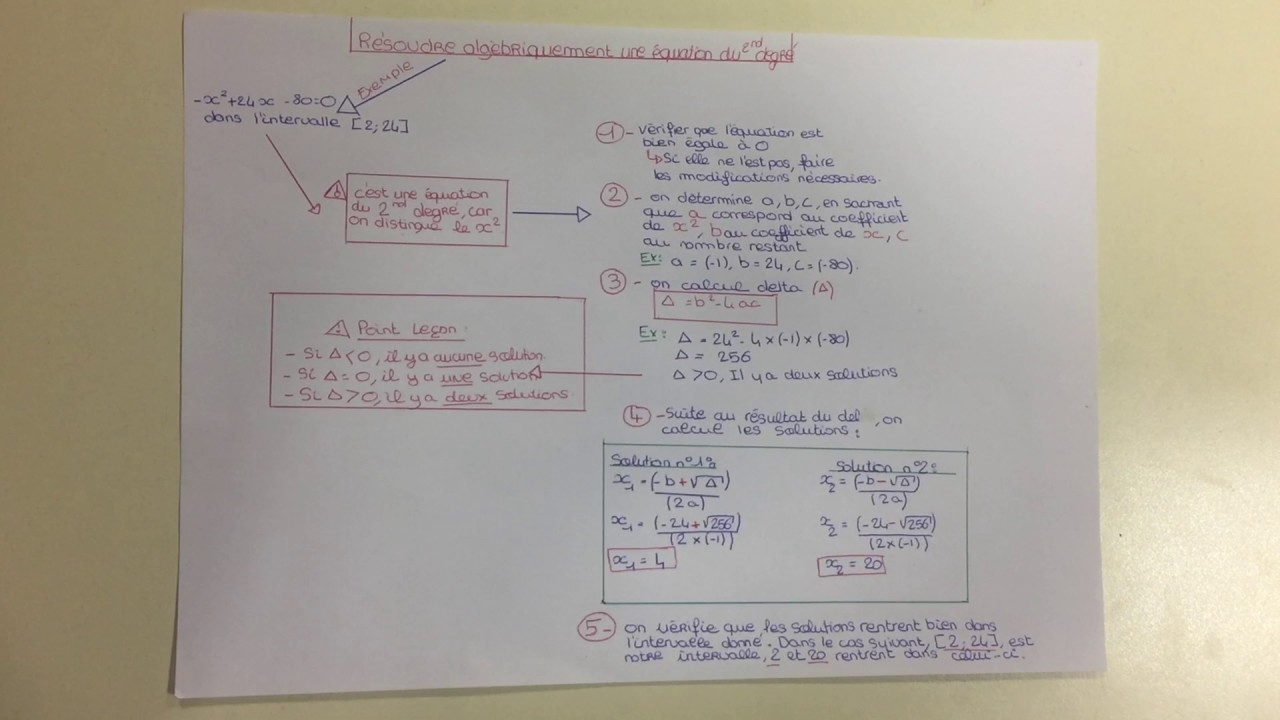 Résoudre algébriquement une équation du 2nd degré
Exemple
-x²+24x -80=0
dans l'intervalle [2;24]
c'est une équation
du 2nd degré, car
on distingue le x²
1- vérifier que l'équation est
bien égale à 0
↳ Si elle ne l'est pas, faire
les modifications nécessaires.
2 - on détermine a,b,c, en sachant
que a correspond au coefficient
de x², b au coefficient de x, c
au nombre restant
Ex: a = (-1), b = 24, c = (-80).
3 - on calcule delta (Δ)
Δ = b²-4ac
Ex: Δ = 24² - 4×(-1)×(-80)
Δ = 256
Δ >0, Il y a deux solutions
Point Leçon :
- Si Δ<0, il y a aucune solution
- Si Δ=0, il y a une solution
- Si Δ>0, il y a deux solutions
4 - Suite au résultat du del , on
calcul les solutions :
Solution n°1:
x₁ = (-b+√Δ)
(2a)
x₁ = (-24+√256)
(2×(-1))
x₁ = 4
Solution n°2:
x₂ = (-b-√Δ)
(2a)
x₂ = (-24-√256)
(2×(-1))
x₂ = 20
5- on vérifie que les solutions rentrent bien dans
l'intervalle donné. Dans le cas suivant, [2;24], est
notre intervalle, 2 et 20 rentrent dans celui-ci.